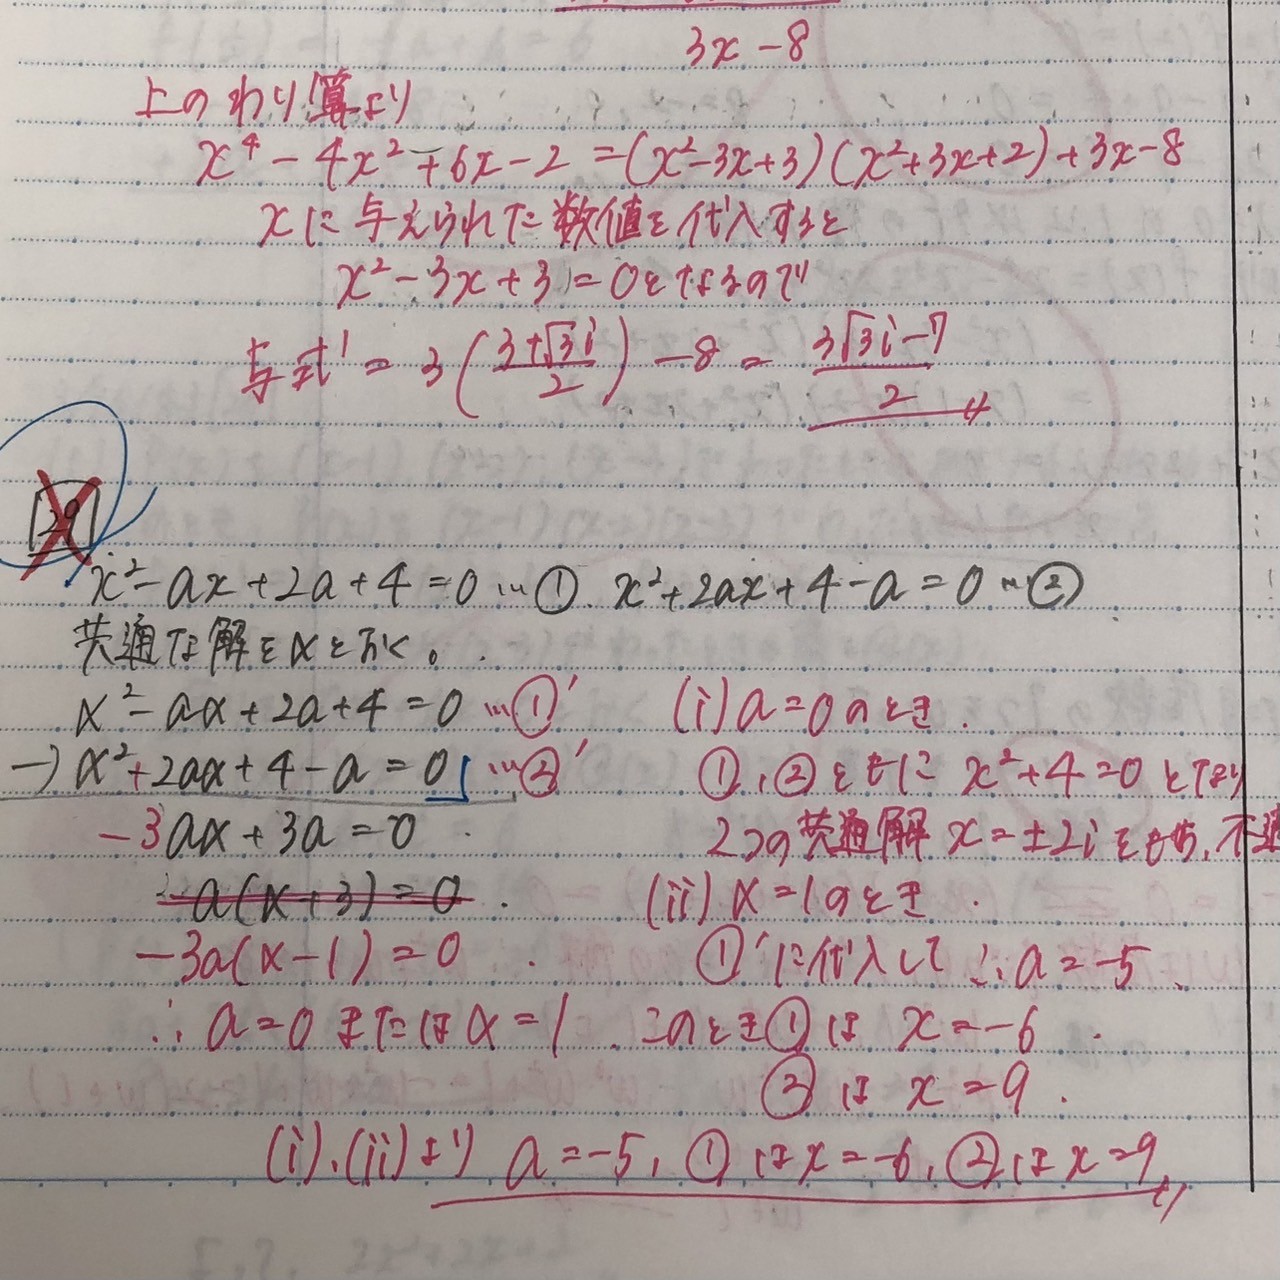 3x-8
上のわり算より
x⁴-4x²+6x-2=(x²-3x+3)(x²+3x+2)+3x-8
xに与えられた数値を代入すると
x²-3x+3=0となるので
与式=3(3+√3i/2)-8=3√3i-7/2
29
x²-ax+2a+4=0…① x²+2ax+4-a=0…②
共通な解をαとおく。
α²-aα+2a+4=0…①'
-)α²+2aα+4-a=0…②'
-3aα+3a=0
-a(α+3)=0
-3a(α-1)=0
∴a=0またはα=1
(i)a=0のとき
①,②ともに x²+4=0となり
2つの共通解 x=±2iをもち、不適
(ii)α=1のとき
①'に代入して ∴a=-5
このとき①は x=-6
②は x=9
(i),(ii)より a=-5,①はx=-6,②はx=9